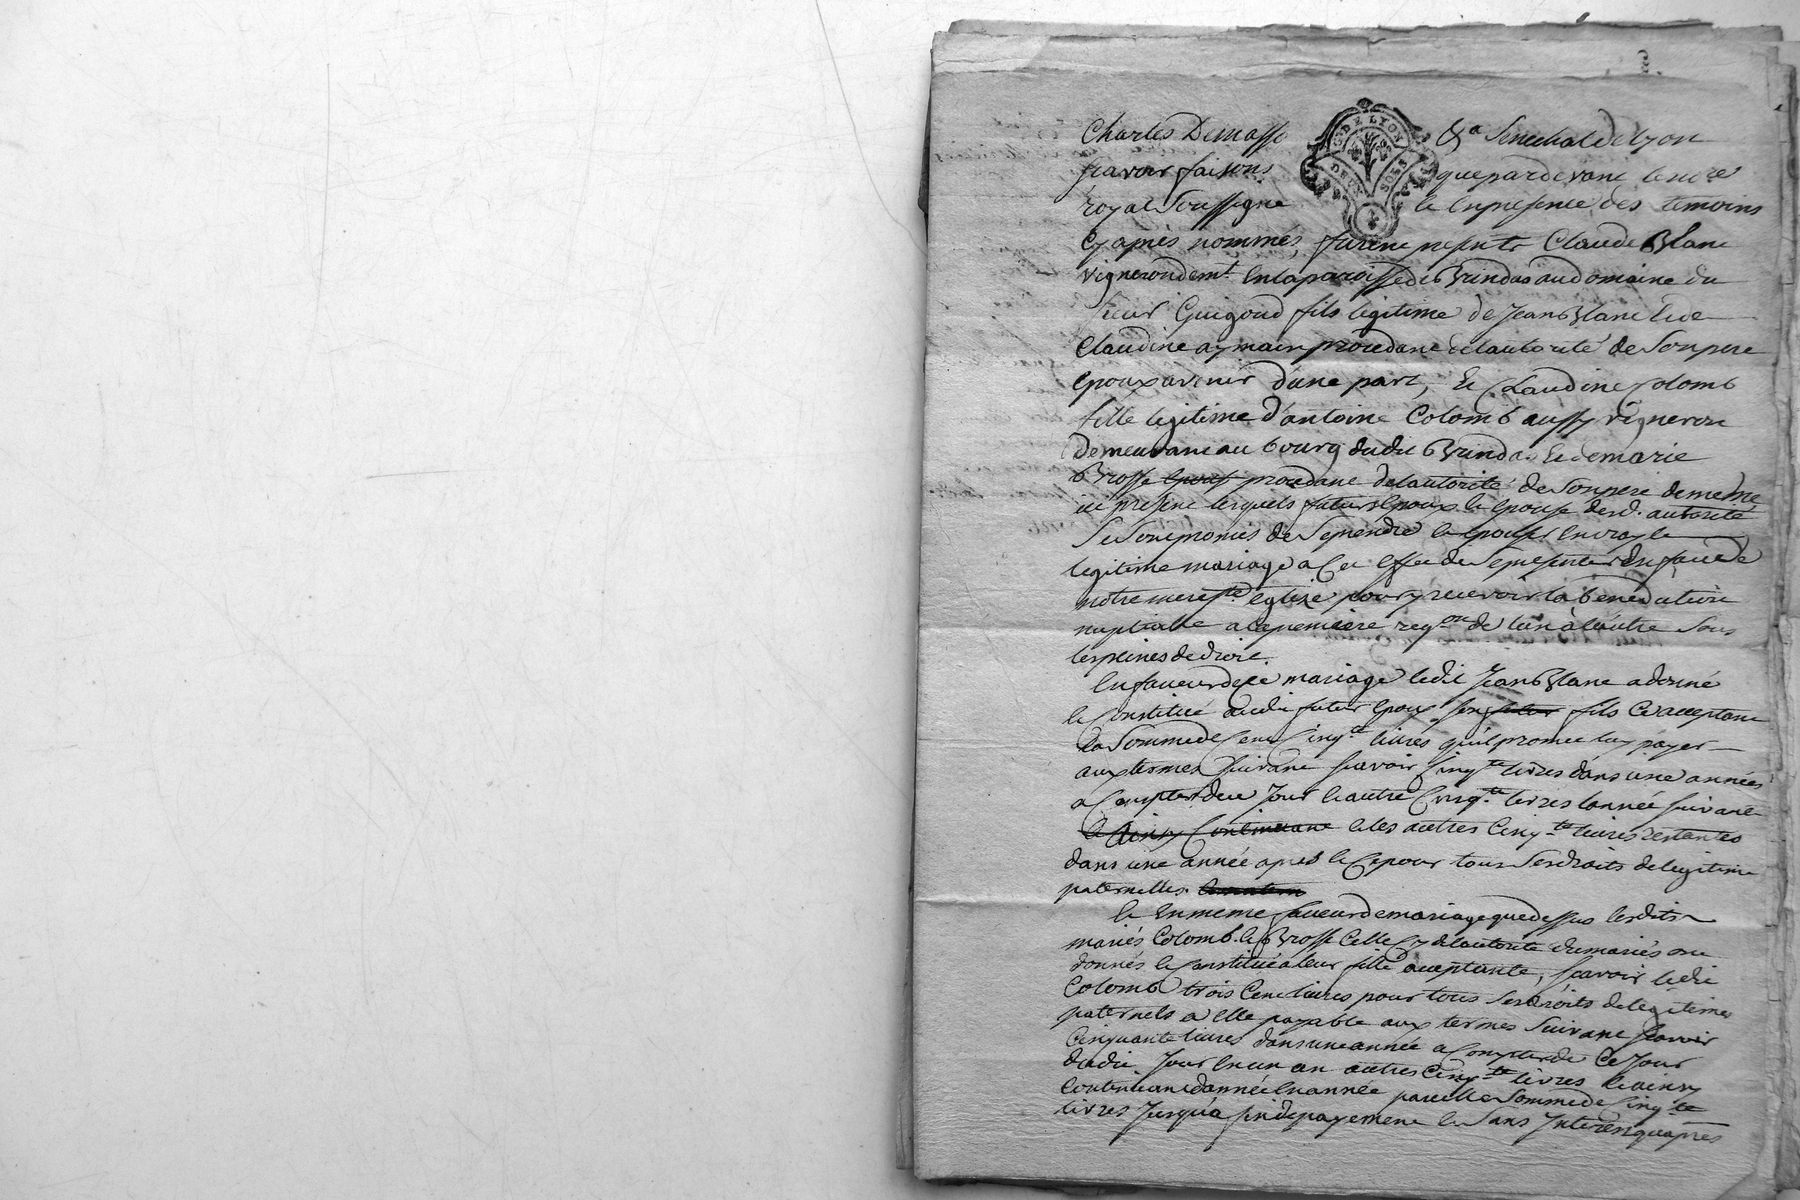 2.
G. DE LYON
DEUX SOLS
Charles Demasso &a Senechal de Lyon
scavoir faisons que pardevant le no.re
royal Soussigné et en presence des temoins
cy apres nommés, furent presents Claude Blanc
vigneron dem.t en la paroisse de Brindas au domaine du
sieur Guigoud fils legitime de Jean Blanc et de
Claudine aymain procedant de lautorité de Son pere
epoux avenir d'une part, et Claudine Colomb
fille legitime d'antoine Colomb aussy vigneron
demeurant au bourg dudit Brindas et de marie
Brosse procedant de lautorité de Son pere de meme
ici present lesquels futurs epoux et epouse desd. autorité
Se Sont promis de Se prendre et epouser en vray et
legitime mariage a Cet effet de Se presenter en face de
notre mere s.te eglize pour y recevoir la benediction
nuptialle a la premiere req.on de lun à lautre Sous
les peines de droit.
En faveur de ce mariage ledit Jean Blanc a donné
et Constitué audit futur epoux son fils ce acceptant
la Somme de Cent Cinq.te livres qu'il promet luy payer
aux termes Suivant scavoir Cinq.te livres dans une année
a Compter de ce Jour et autre Cinq.te livres lannée suivant
et les autres Cinq.te livres restantes
dans une année apres et Ce pour tous Ses droits de legitime
paternelles.
et En meme faveur de mariage que dessus lesdits
mariés Colomb et Brosse Celle Cy de lautorité du mariés ont
donnés et Constitué a leur fille acceptante, scavoir ledit
Colomb trois Cent livres pour tous Ses droits de legitimes
paternels a elle payable aux termes Suivant scavoir
Cinquante livres dans une année a Compter de Ce Jour
dudit Jour en un an autres Cinq.te livres et ainsy
Continuant d'année En année pareille Somme de Cinq.te
livres Jusqu'a fin de payement et Sans Interest qu'apres